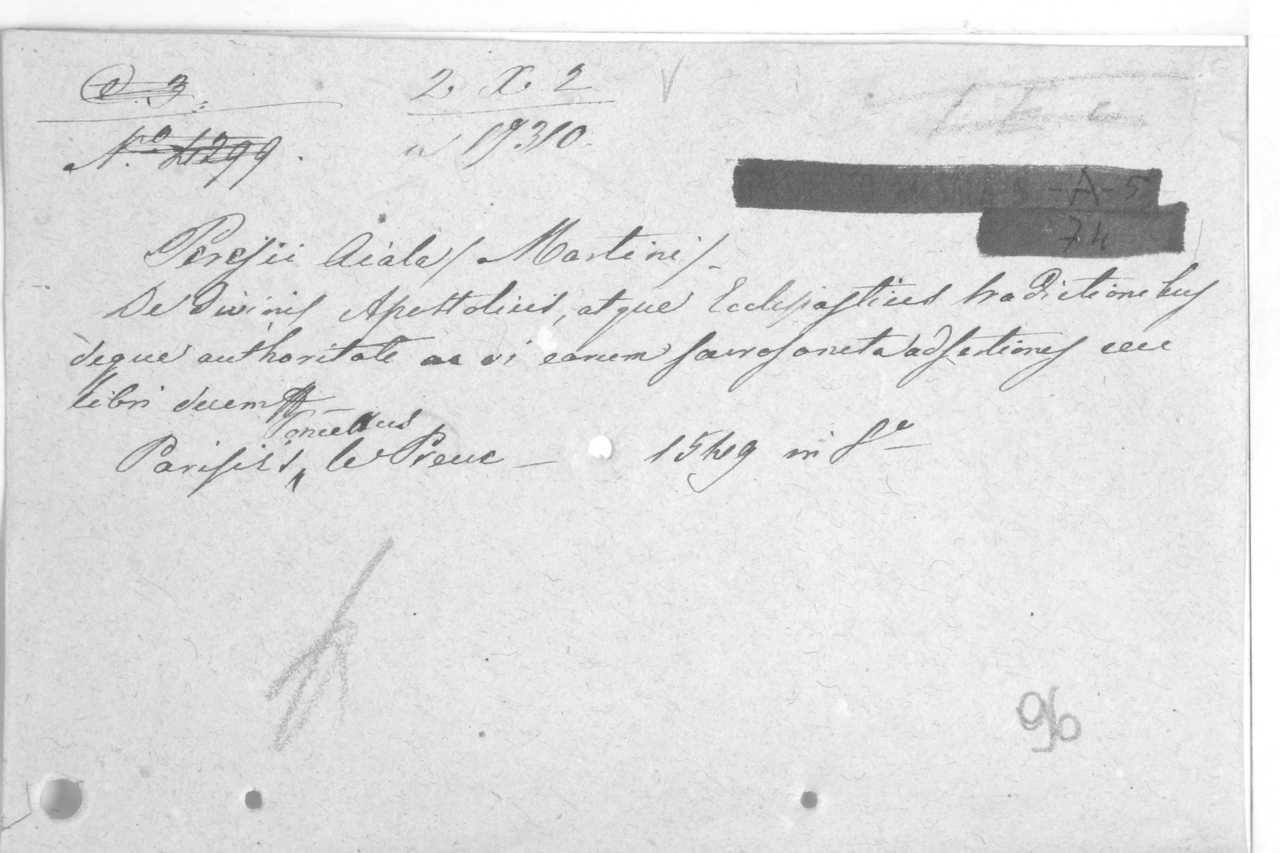 d. 3.
2. X. 2
No 4299.
n 19310.
-A-5
74
Peresii Aiala / Martini /.
De divinis Apostolicis, atque Ecclesiasticis traditionibus
deque authoritate ac vi earum sacrosancta adsertiones ceu
libri decem
Poncetus
Parisiis, le Preux — 1549 in 8o
96